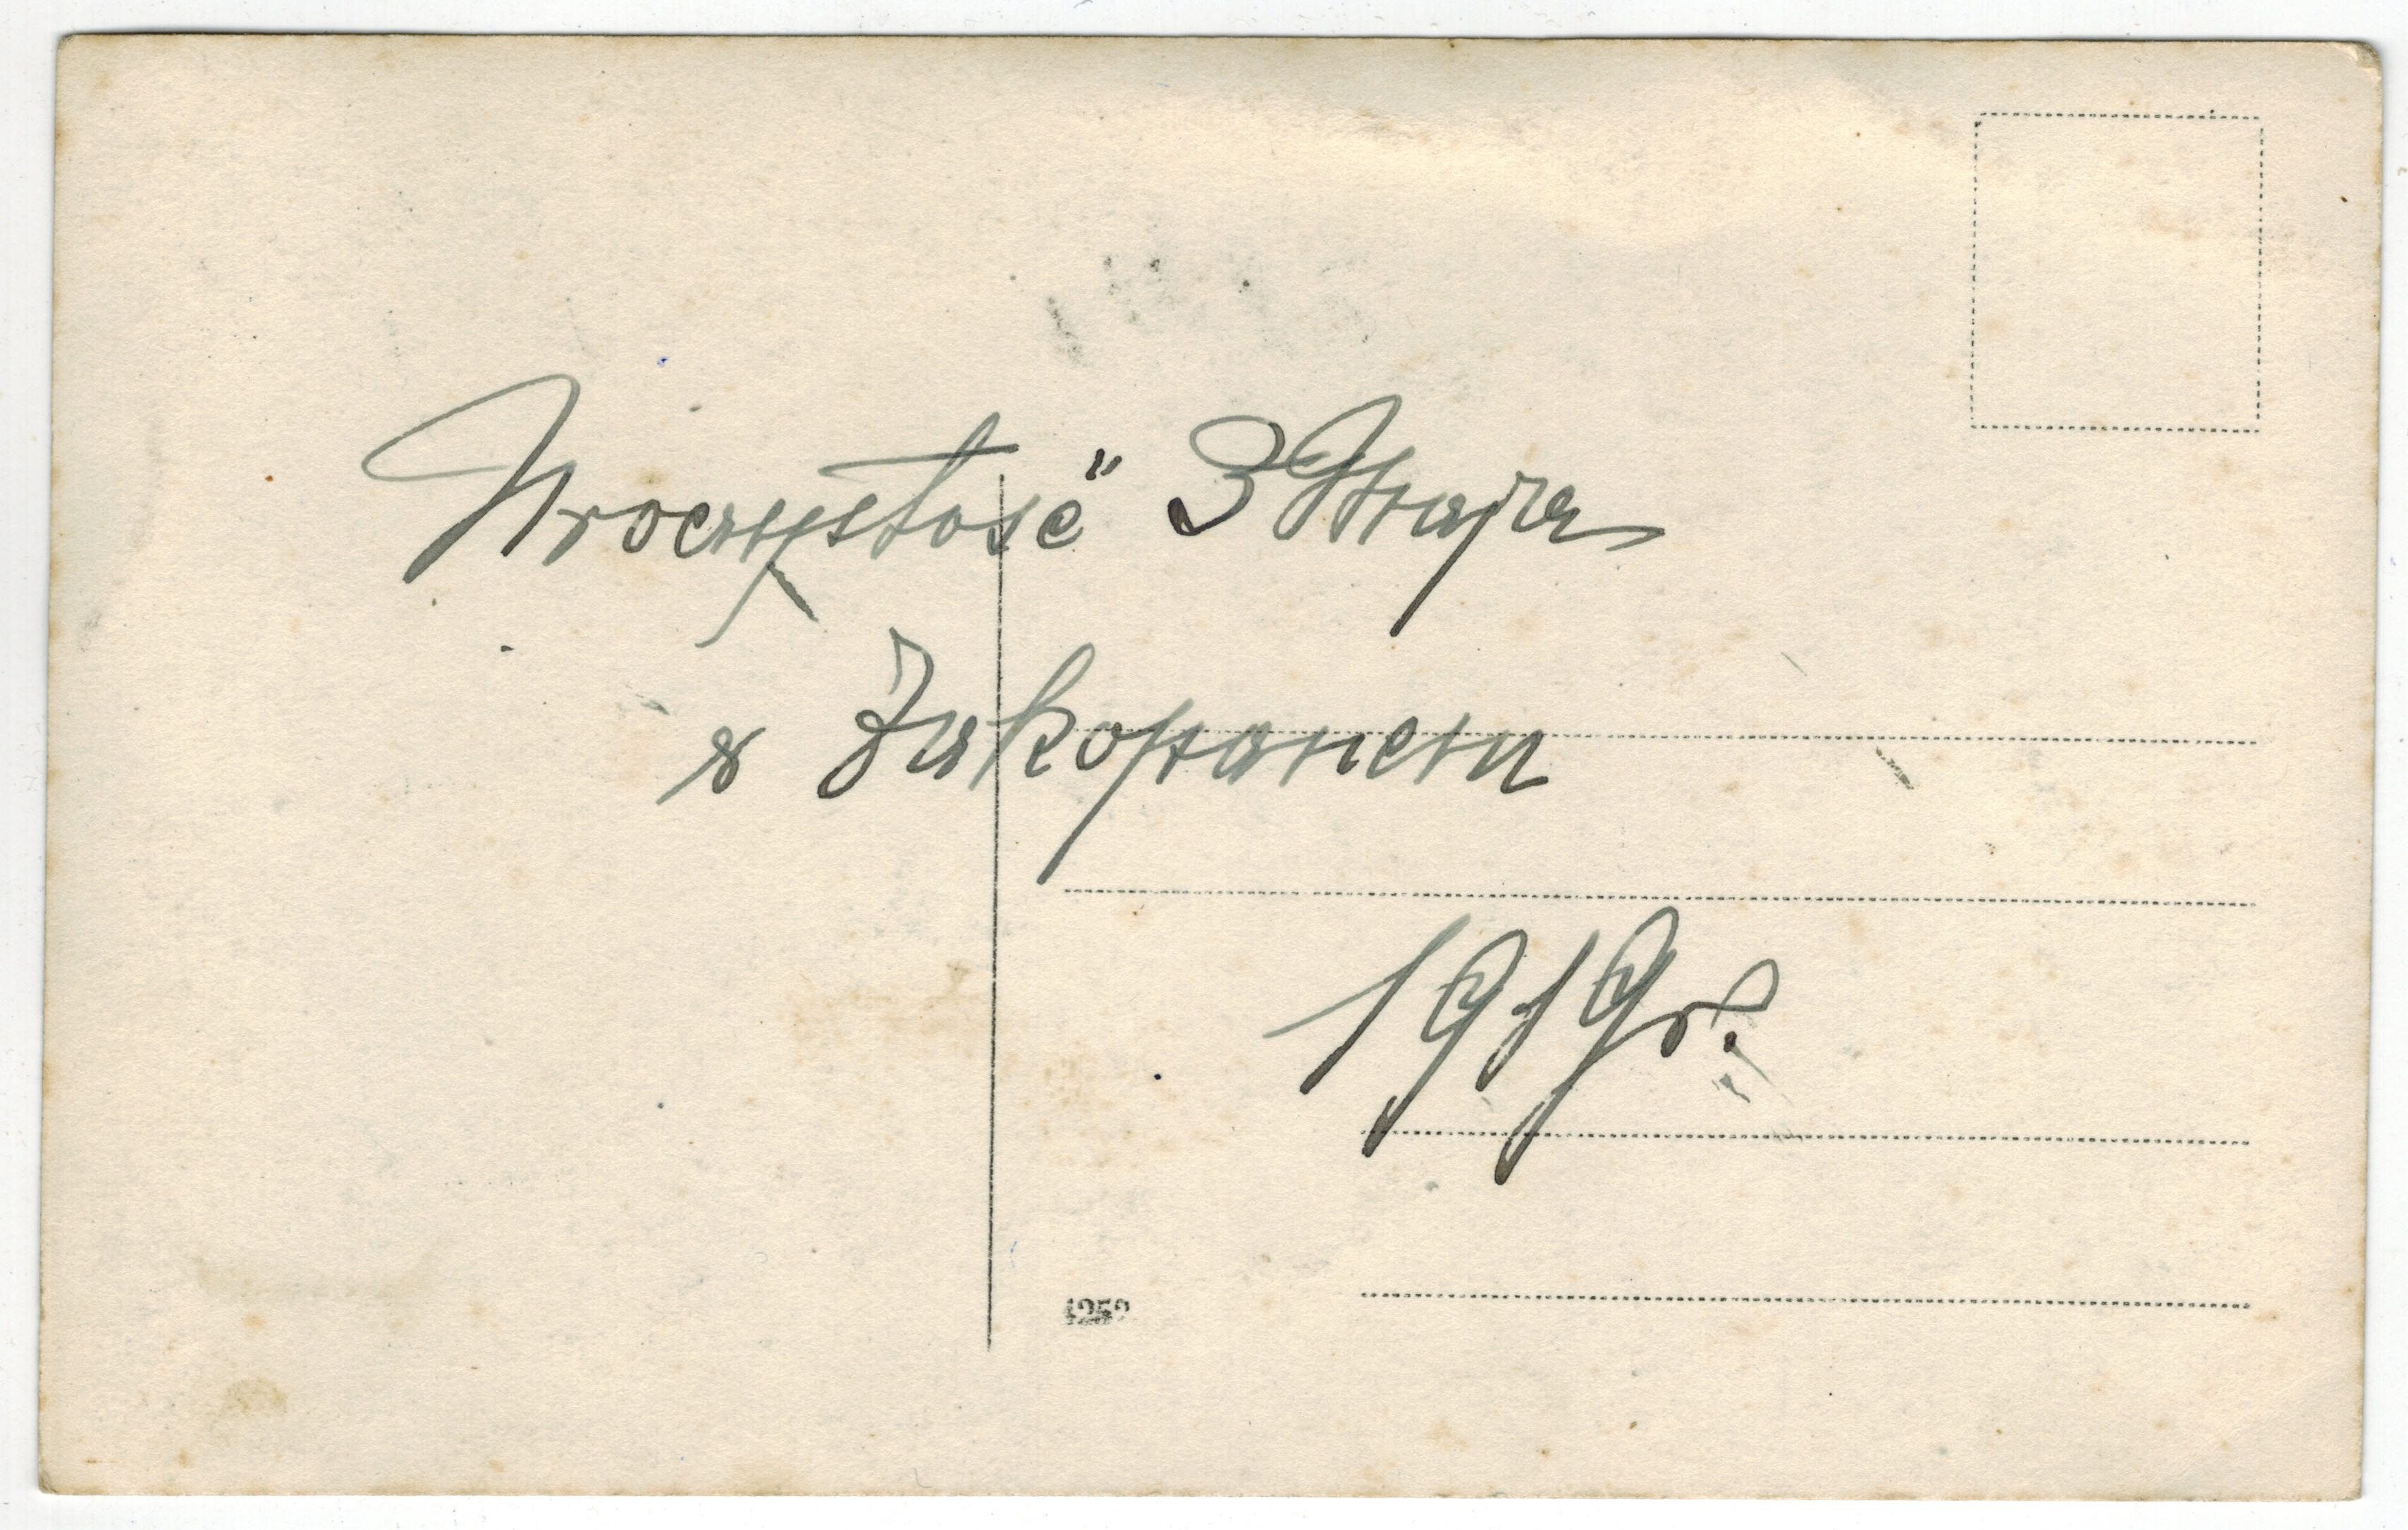 Uroczystość 3 Maja
w Zakopanem
1919 r.
4259